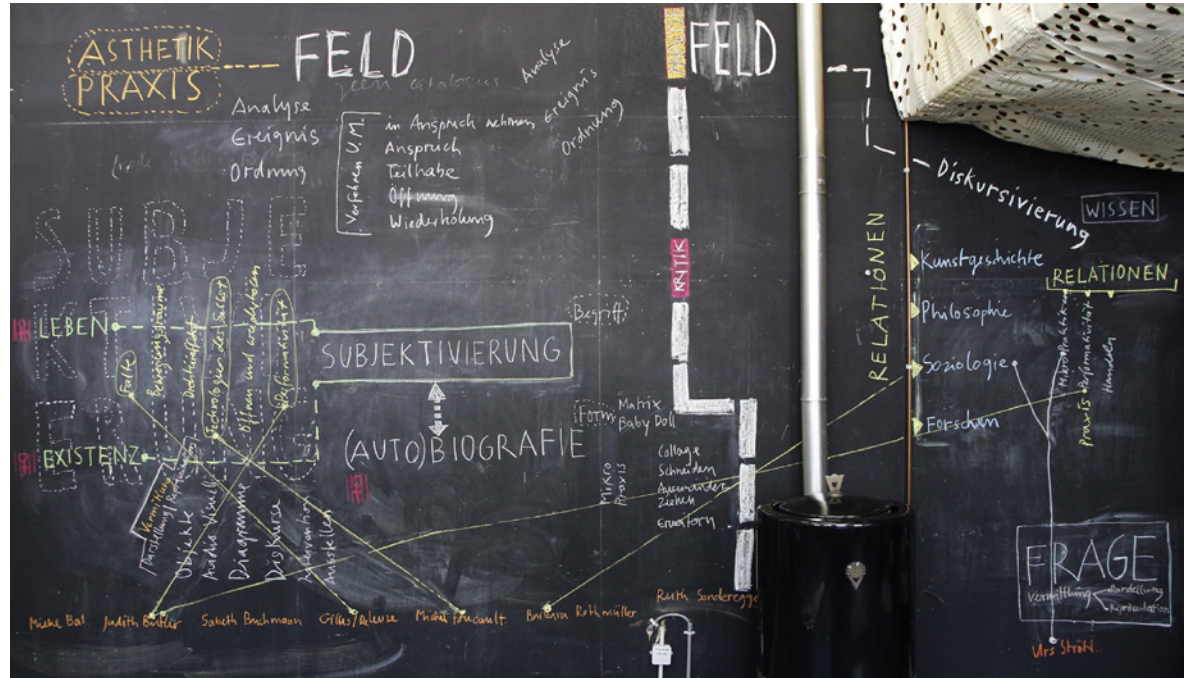 ASTHETIK
PRAXIS
FELD
geen catalogus
Analyse
Ereignis
Ordnung
Verfahren U.M.
in Anspruch nehmen
Anspruch
Teilhabe
Öffnung
Wiederholung
Analyse
Ereignis
Ordnung
SUBJE
KT
LEBEN
EXISTENZ
Falte
Bewegungsräume
Technologien des Selbst
Öffnen und
Performativität
SUBJEKTIVIERUNG
(AUTO)BIOGRAFIE
Begriff
Form
Matrix
Baby Doll
Mikro
Praxis
Collage
Schneiden
Auseinander
Ziehen
Erweitern
Vermittlung
Darstellung/
Objekte
Audiovisuell
Diagramme
Diskurse
Intervention
Ausstellen
Mieke Bal
Judith Butler
Sabeth Buchmann
Gilles/Deleuze
Michel Foucault
Barbara Rothmüller
Ruth Sonderegge
FELD
KRITIK
Diskursivierung
RELATIONEN
Kunstgeschichte
Philosophie
Soziologie
Forschen
WISSEN
RELATIONEN
Mikropraktiken
Praxis Performativität
Handeln
FRAGE
Vermittlung
Darstellung
Repräsentation
Urs